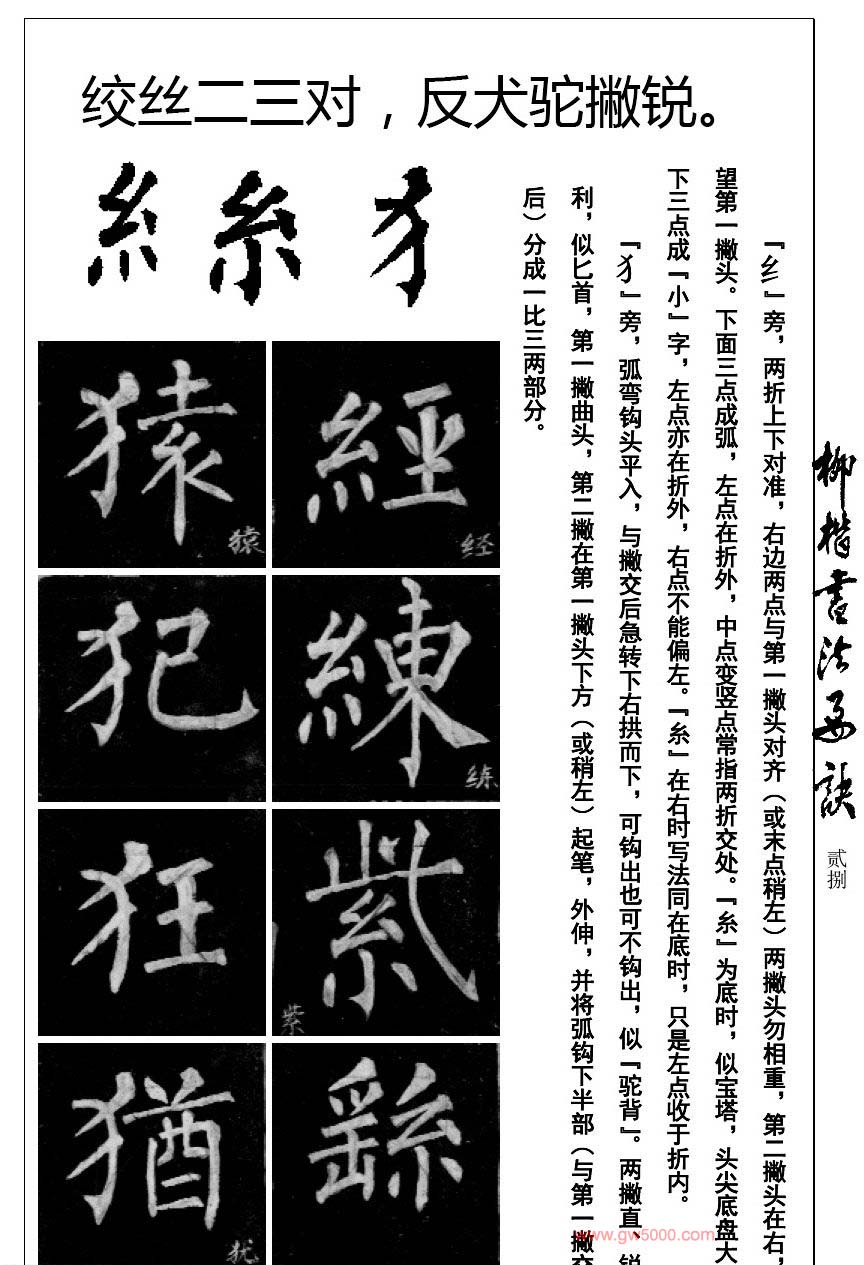 绞丝二三对，反犬驼撇锐。
糹 糸 犭
『纟』旁，两折上下对准，右边两点与第一撇头对齐（或末点稍左）两撇头勿相重，第二撇头在右，
望第一撇头。下面三点成弧，左点在折外，中点变竖点常指两折交处。『糸』为底时，似宝塔，头尖底盘大
下三点成『小』字，左点亦在折外，右点不能偏左。『糸』在右时写法同在底时，只是左点收于折内。
『犭』旁，弧弯钩头平入，与撇交后急转下右拱而下，可钩出也可不钩出，似『驼背』。两撇直、锐
利，似匕首，第一撇曲头，第二撇在第一撇头下方（或稍左）起笔，外伸，并将弧钩下半部（与第一撇交
后）分成一比三两部分。
猿 猿
經 经
犯
練 练
狂
紫 紫
猶 犹
繇
柳楷书法要诀
贰捌
www.gw5000.com